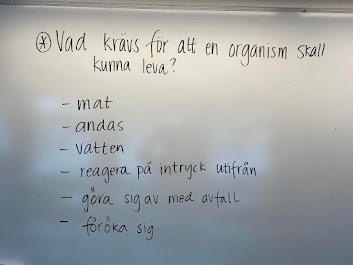 ⊛ Vad krävs för att en organism skall
kunna leva?
- mat
- andas
- vatten
- reagera på intryck utifrån
- göra sig av med avfall
- föröka sig